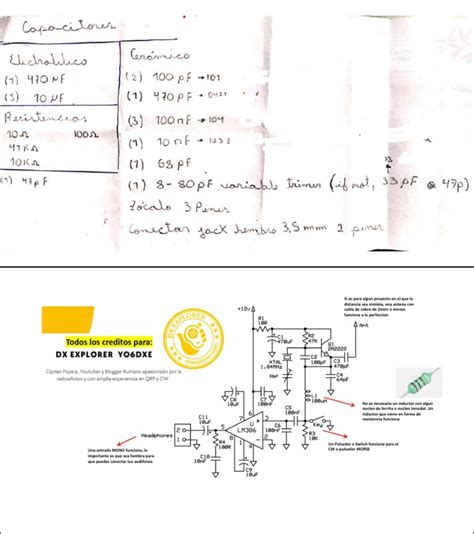 Capacitores
Electrolitico
(1) 470 µF
(5) 10 µF
Resistencias
10Ω 100Ω
47KΩ
10KΩ
(1) 47pF
Cerámico
(2) 100 pF → 101
(1) 470 pF →
(3) 100nF → 104
(1) 10nF →
(1) 68pF
(1) 8-80pF variable trimer (if not, 33pF 47p)
Zócalo 3 Pines
Conectar jack hembra 3,5mm 2 pines
Todos los creditos para:
DX EXPLORER YO6DXE
DX EXPLORER
Ciprian Popica, Youtuber y Blogger Rumano apasionado por la
radioaficion y con amplia experiencia en QRP y CW.
Una entrada MONO funciona, lo
importante es que sea hembra para
que puedas conectar tus audifonos
Si es para algun proyecto en el que la
distancia sea minima, una antena con
cable de cobre de 2mtrs o menos
funciona a la perfeccion
No es necesario un inductor con algun
nucleo de ferrita o nucleo toroidal. Un
inductor que viene en forma de
resistencia funciona
Un Pulsador o Switch funciona para el
CW o pulsador MORSE
+12v
Ant.
R1
10R
C1
470uF
R2
47K
Q1
2N2222
XTAL
C2
100pF
C3
470pF
C4
L1
100uH
C5
100nF
Key
R3
10K
C6
100nF
C7
10uF
C8
10uF
LM386
C11
10uF
Headphones
R4
C10
10nF
C9
10uF